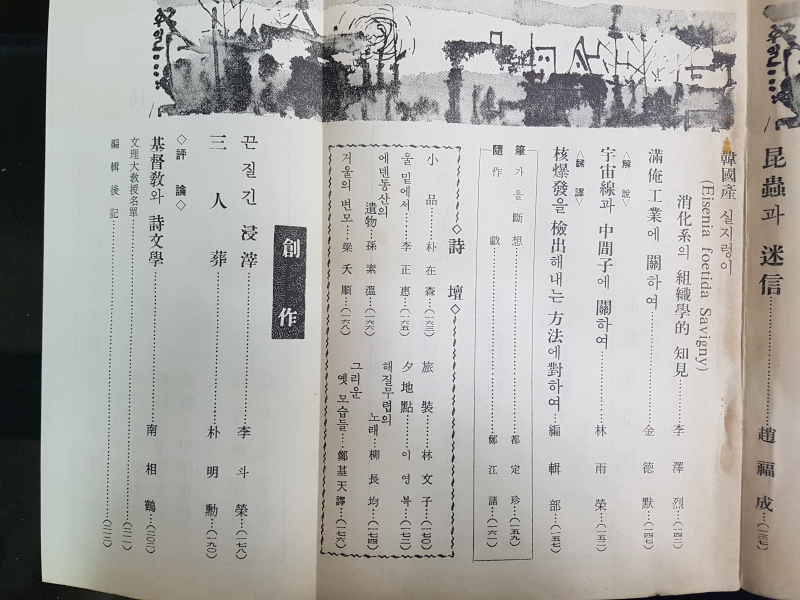 昆蟲과 迷信……趙福成…(一三七)
韓國產 실지렁이
(Eisenia foetida Savigny)
消化系의 組織學的 知見……李澤烈…(一四二)
滿俺工業에 關하여……金德默…(一四七)
<解說>
宇宙線과 中間子에 關하여……林雨榮…(一五二)
<飜譯>
核爆發을 檢出해내는 方法에對하여…編輯部…(一五七)
隨筆
가을斷想……都定珍…(一五九)
作戱……鄭江諸…(一六一)
◇詩壇◇
小品……朴在森…(一六三)
旅裝……林文子…(一七〇)
울밑에서……李正惠…(一六五)
夕地點……이영복…(一七二)
에덴동산의
遺物…孫素溫…(一六六)
해질무렵의
노래…柳長均…(一七四)
거울의 변모…梁天順…(一六八)
그리운
옛 모습들…鄭基天譯…(一七六)
創作
끈질긴 浸滓……李斗榮…(一七八)
三人葬……朴明勳…(一九〇)
◇評論◇
基督敎와 詩文學……南相鶴…(二〇二)
文理大敎授名單……(二一一)
編輯後記……(二一二)